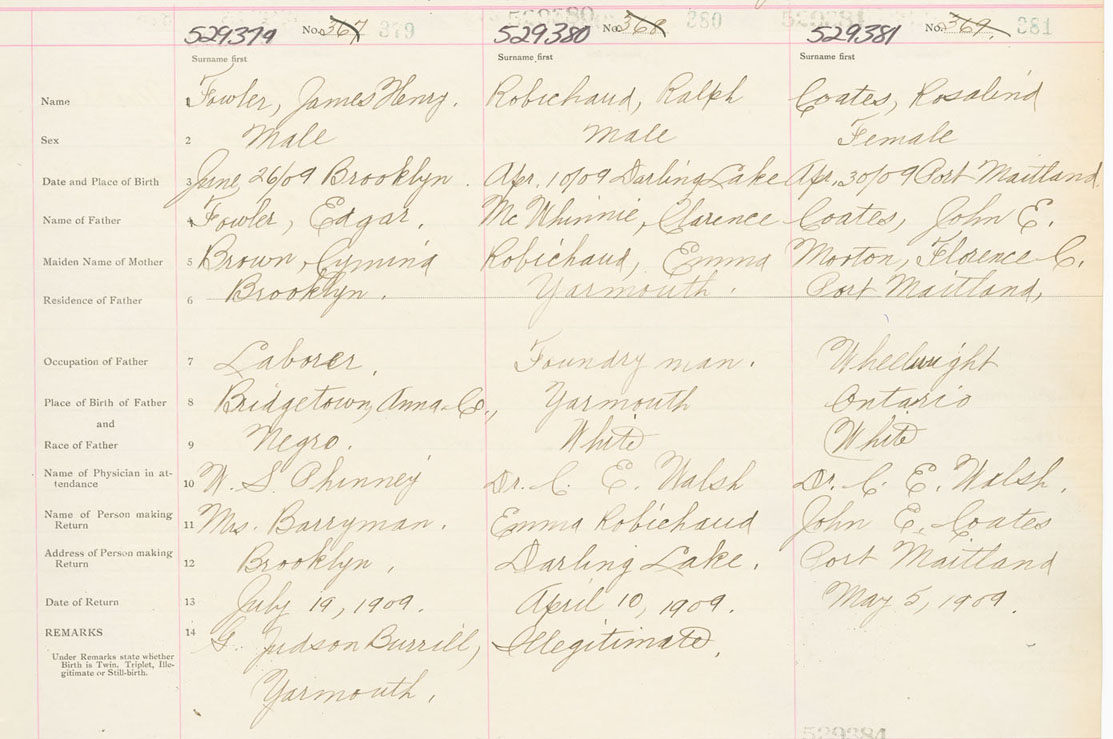 529379 No. 367 379 529380 No. 368 380 529381 No. 369. 381
Surname first Surname first Surname first
Name 1 Fowler, James Henry. Robichaud, Ralph Coates, Rosalind
Sex 2 Male Male Female
Date and Place of Birth 3 June 26/09 Brooklyn. Apr. 10/09 Darling Lake Apr. 30/09 Port Maitland.
Name of Father 4 Fowler, Edgar. McWhinnie, Clarence Coates, John E.
Maiden Name of Mother 5 Brown, Robichaud, Emma Morton, Florence C.
Residence of Father 6 Brooklyn. Yarmouth. Port Maitland,
Occupation of Father 7 Laborer, Foundry man. Wheelwright
Place of Birth of Father 8 Bridgetown, Anna. Co., Yarmouth Ontario
and
Race of Father 9 Negro. White White
Name of Physician in at-
tendance 10 W. S. Phinney Dr. C. E. Walsh Dr. C. E. Walsh.
Name of Person making
Return 11 Mrs. Barryman. Emma Robichaud John E. Coates
Address of Person making
Return 12 Brooklyn, Darling Lake. Port Maitland
Date of Return 13 July 19, 1909. April 10, 1909. May 5, 1909.
REMARKS 14 G. Judson Burrill, Illegitimate,
Under Remarks state whether
Birth is Twin, Triplet, Ille-
gitimate or Still-birth.
Yarmouth,
529384